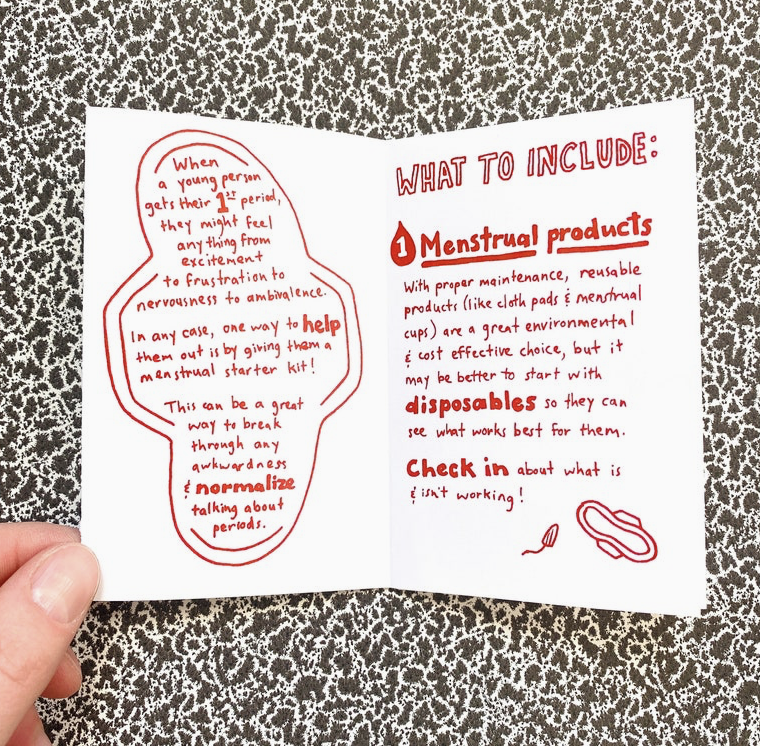 When
a young person
gets their 1st period,
they might feel
anything from
excitement
to frustration to
nervousness to ambivalence.
In any case, one way to help
them out is by giving them a
menstrual starter kit!
This can be a great
way to break
through any
awkwardness
& normalize
talking about
periods.
WHAT TO INCLUDE:
1 Menstrual products
With proper maintenance, reusable
products (like cloth pads & menstrual
cups) are a great environmental
& cost effective choice, but it
may be better to start with
disposables so they can
see what works best for them.
Check in about what is
& isn't working!